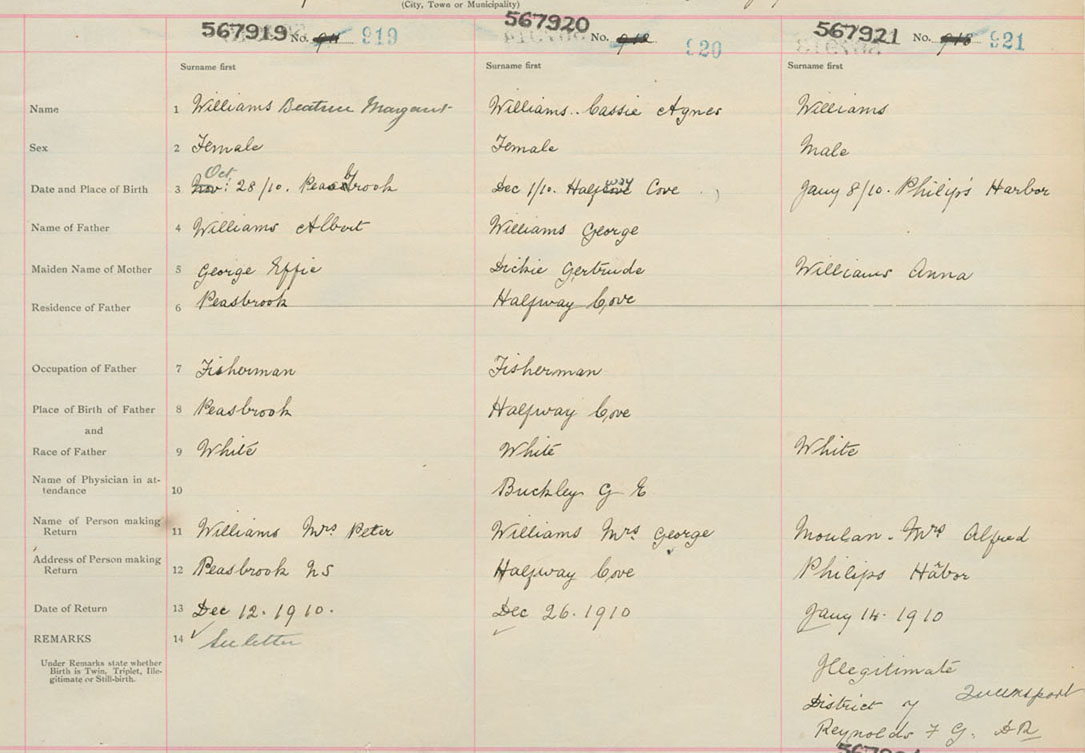 (City, Town or Municipality)
567919 No. 919
567920 No. 920
567921 No. 921
Surname first Surname first Surname first
Name 1 Williams Beatrice Margaret Williams.. Cassie Agnes Williams
Sex 2 Female Female Male
Date and Place of Birth 3 Oct Nov: 28/10. Peasbrook Dec 1/10. Halfway Cove Jany 8/10. Philip's Harbor
Name of Father 4 Williams Albert Williams George
Maiden Name of Mother 5 George Effie Dickie Gertrude Williams Anna
Residence of Father 6 Peasbrook Halfway Cove
Occupation of Father 7 Fisherman Fisherman
Place of Birth of Father 8 Peasbrook Halfway Cove
and
Race of Father 9 White White White
Name of Physician in at-
tendance 10 Buckley G E
Name of Person making
Return 11 Williams Mrs Peter Williams Mrs George Moulan. Mrs Alfred
Address of Person making
Return 12 Peasbrook NS Halfway Cove Philips Habor
Date of Return 13 Dec 12. 1910. Dec 26. 1910 Jany 14. 1910
REMARKS 14 See letter
Under Remarks state whether
Birth is Twin, Triplet, Ille-
gitimate or Still-birth.
Illegitimate
District of Queensport
Reynolds F G. DR